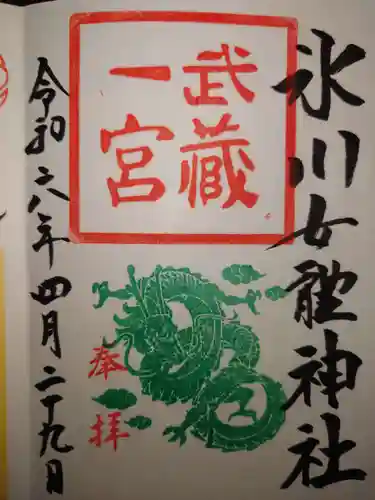 氷川女體神社
武蔵
一宮
奉拝
令和六年四月二十九日